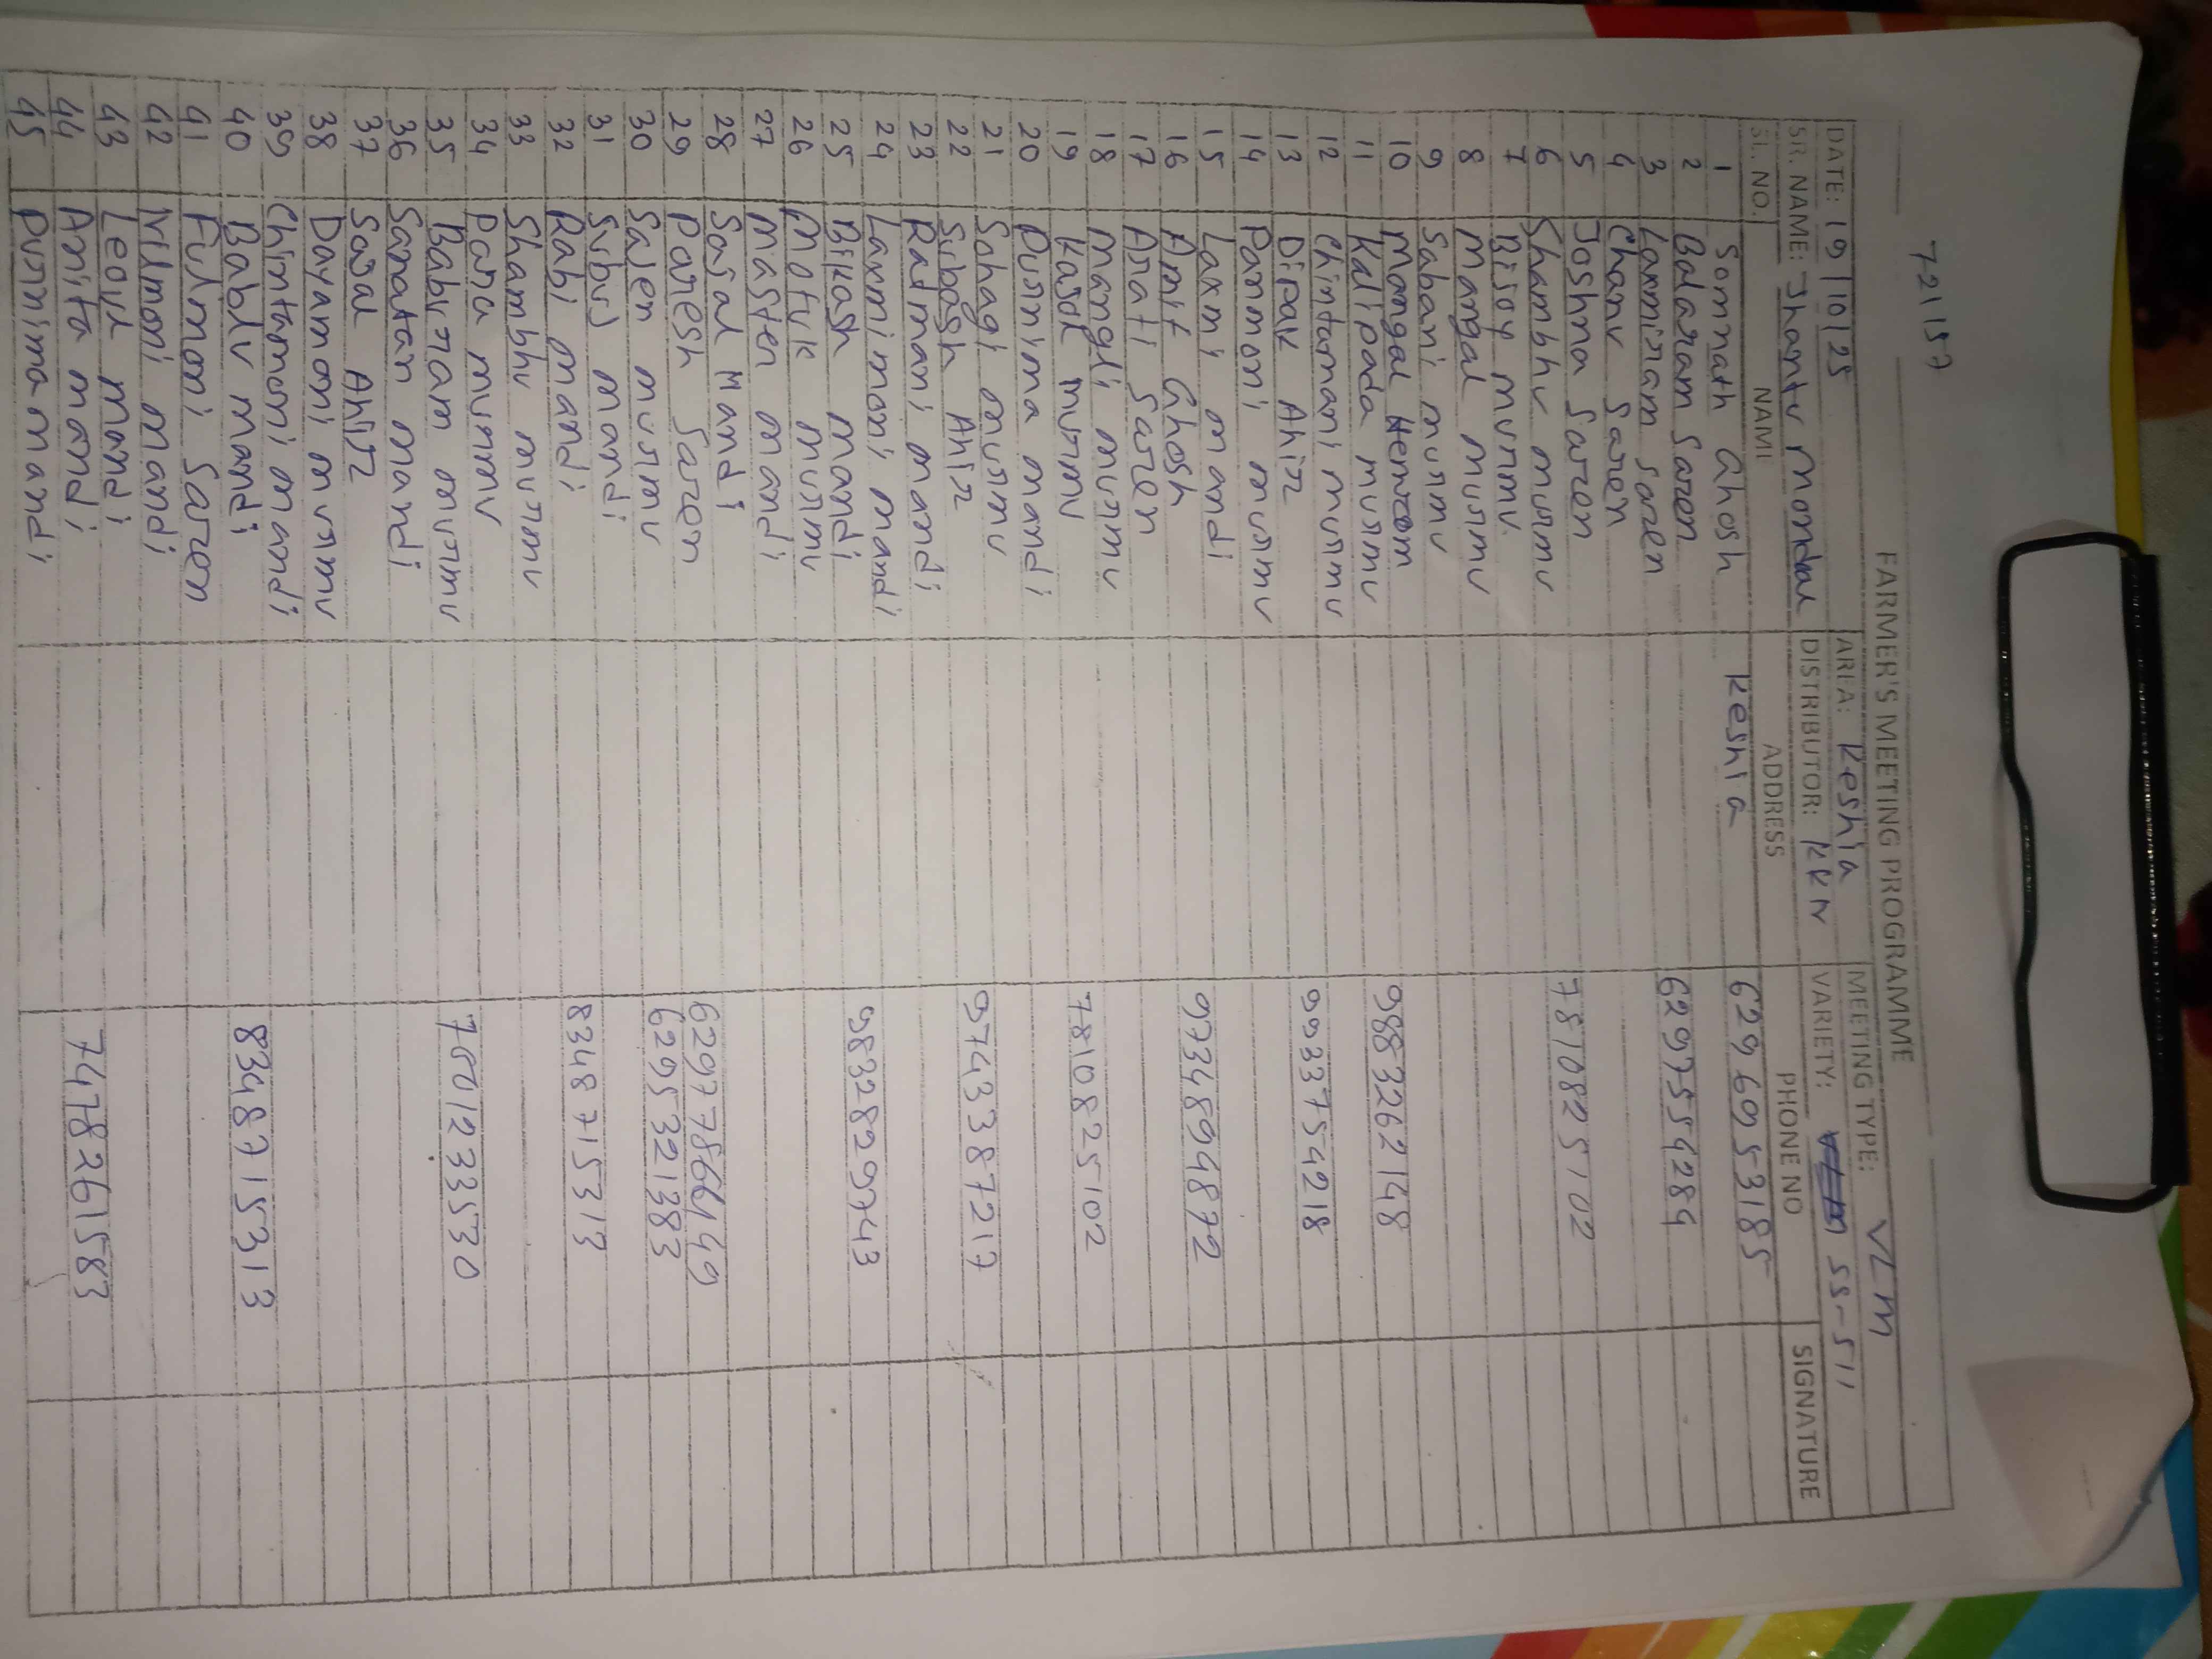 721157
FARMER'S MEETING PROGRAMME
AREA: Keshia MEETING TYPE: VLM
DATE: 19/10/25 DISTRIBUTOR: KKN VARIETY: SS-511
SR. NAME: Jhantu Mondal
SL. NO. NAME ADDRESS PHONE NO SIGNATURE
1 Somnath Ghosh Keshia 6296953185
2 Balaram Saren
3 Laxmiram Saren 6297554284
4 Chanu Saren
5 Joshna Saren
6 Shambhu murmu 7810825102
7 Bijoy murmu
8 mangal murmu
9 Sabani murmu
10 Mangal Hemrom
11 Kalipada murmu 9883262148
12 Chintamani murmu
13 Dipak Ahir 9933754218
14 Parmoni murmu
15 Laxmi mandi
16 Amit Ghosh 9734894872
17 Arati Saren
18 Mangli murmu
19 Kajol murmu 7810825102
20 Purnima mandi
21 Sohagi murmu
22 Subash Ahir 9743387217
23 Rajmani mandi
24 Laxmimoni mandi
25 Bikash mandi 9832829743
26 Motuk murmu
27 Master mandi
28 Sajal Mandi
29 Paresh Saren 6297786649
30 Sajen murmu 6295321383
31 Subu mandi
32 Rabi mandi 8348715313
33 Shambhu murmu
34 Para murmu
35 Baburam murmu 7501233530
36 Sanatan mandi
37 Sajal Ahir
38 Dayamoni murmu
39 Chintamoni mandi
40 Bablu mandi 8348715313
41 Fulmoni Saren
42 Nilmoni mandi
43 mandi
44 Amita mandi 7478261583
45 Purnima mandi